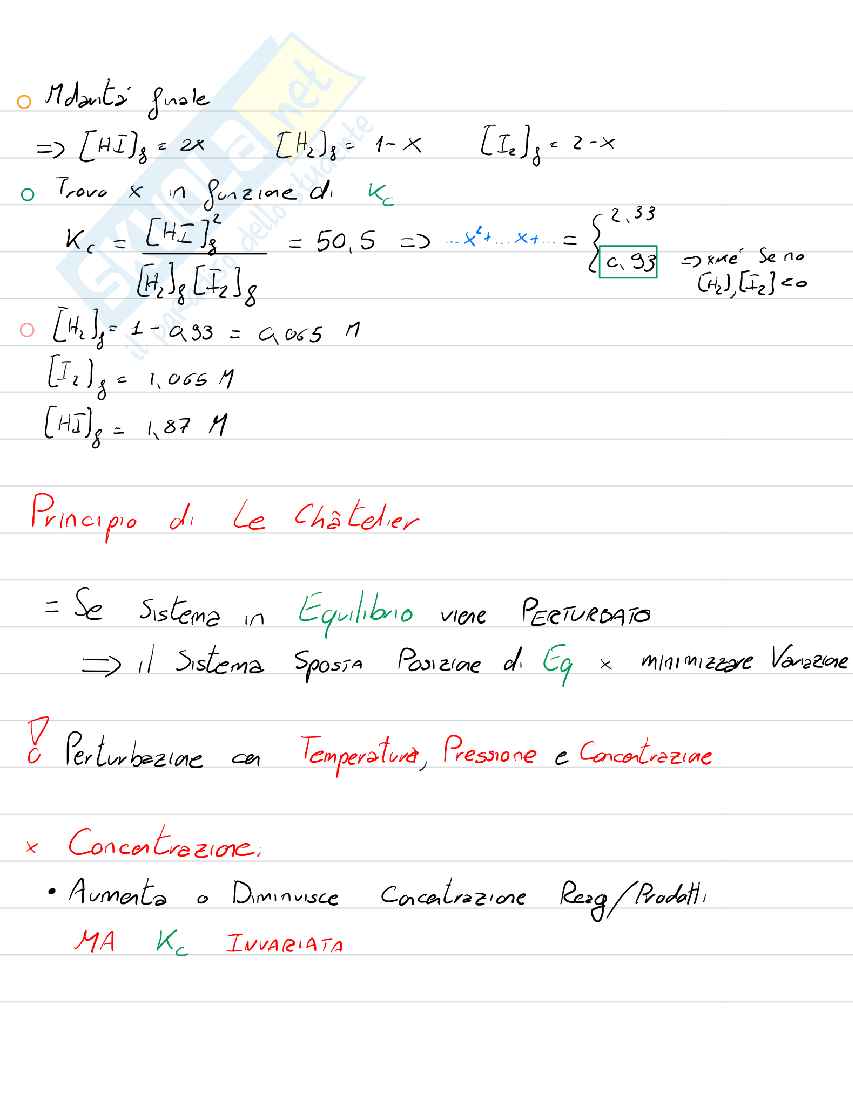 Molarità finale
=> [HI]f = 2x [H2]f = 1-x [I2]f = 2-x
Trovo x in funzione di Kc
Kc = [HI]f² / [H2]f [I2]f = 50,5 => ...x²+...x+... = { 2,33
0,93 => xké se no
[H2],[I2] <0
[H2]f = 1-0,93 = 0,065 M
[I2]f = 1,065 M
[HI]f = 1,87 M
Principio di Le Châtelier
= Se Sistema in Equilibrio viene PERTURBATO
=> il Sistema SPOSTA Posizione di Eq x minimizzare Variazione
! Perturbazione con Temperatura, Pressione e Concentrazione
x Concentrazione:
• Aumenta o Diminuisce Concentrazione Reag/Prodotti
MA Kc INVARIATA
SKUOLA.net
il paradiso dello studente